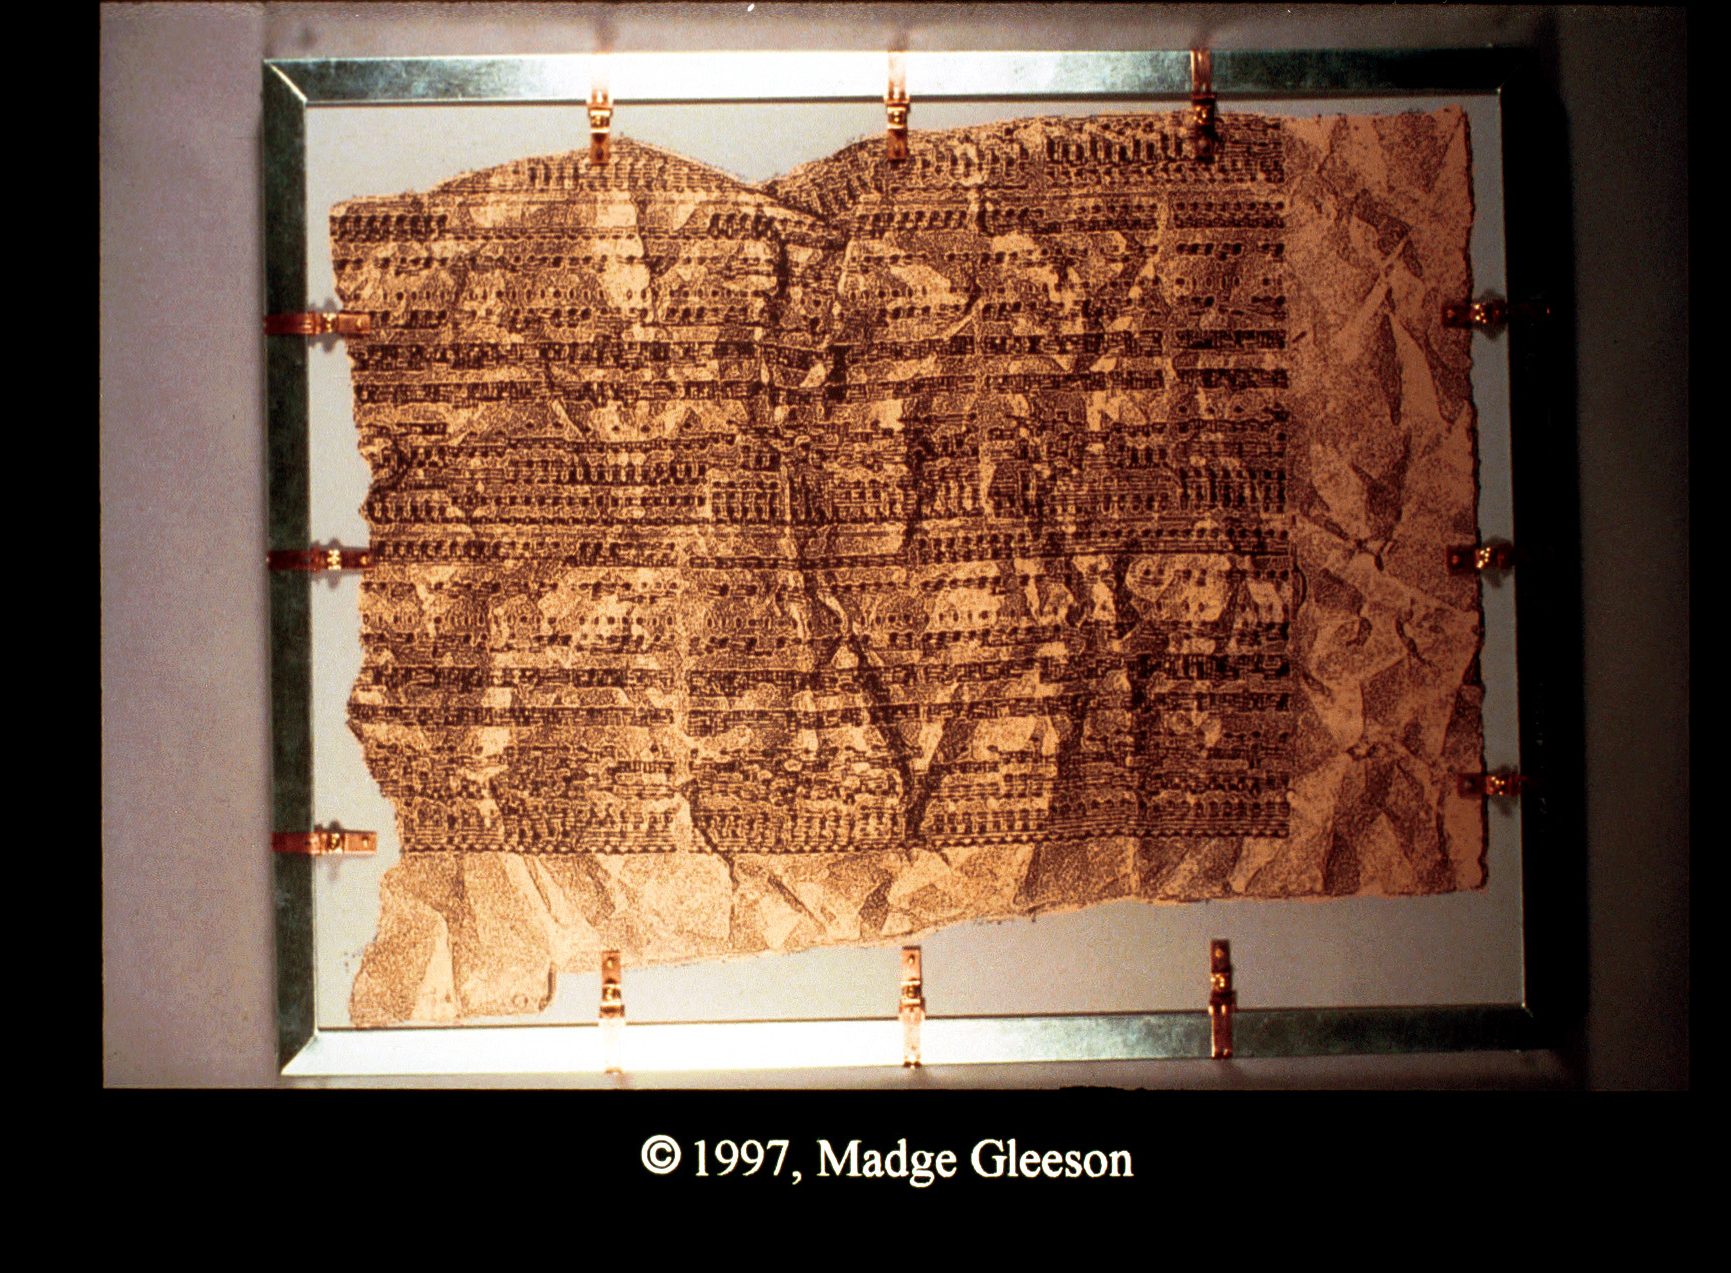 © 1997, Madge Gleeson